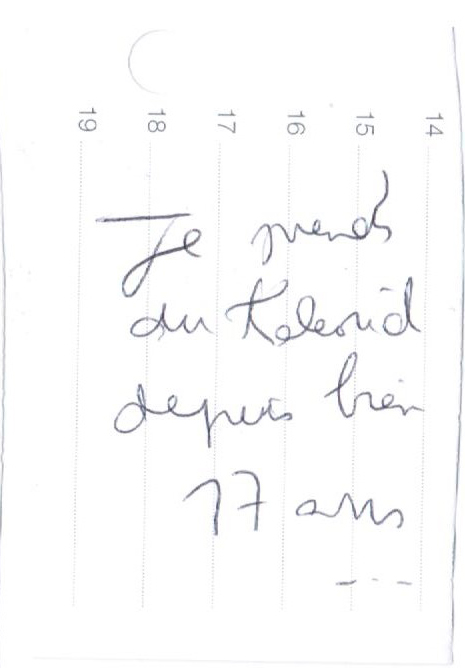 14
15
16
17
18
19
Je prends
du Kaleorid
depuis bien
17 ans
---